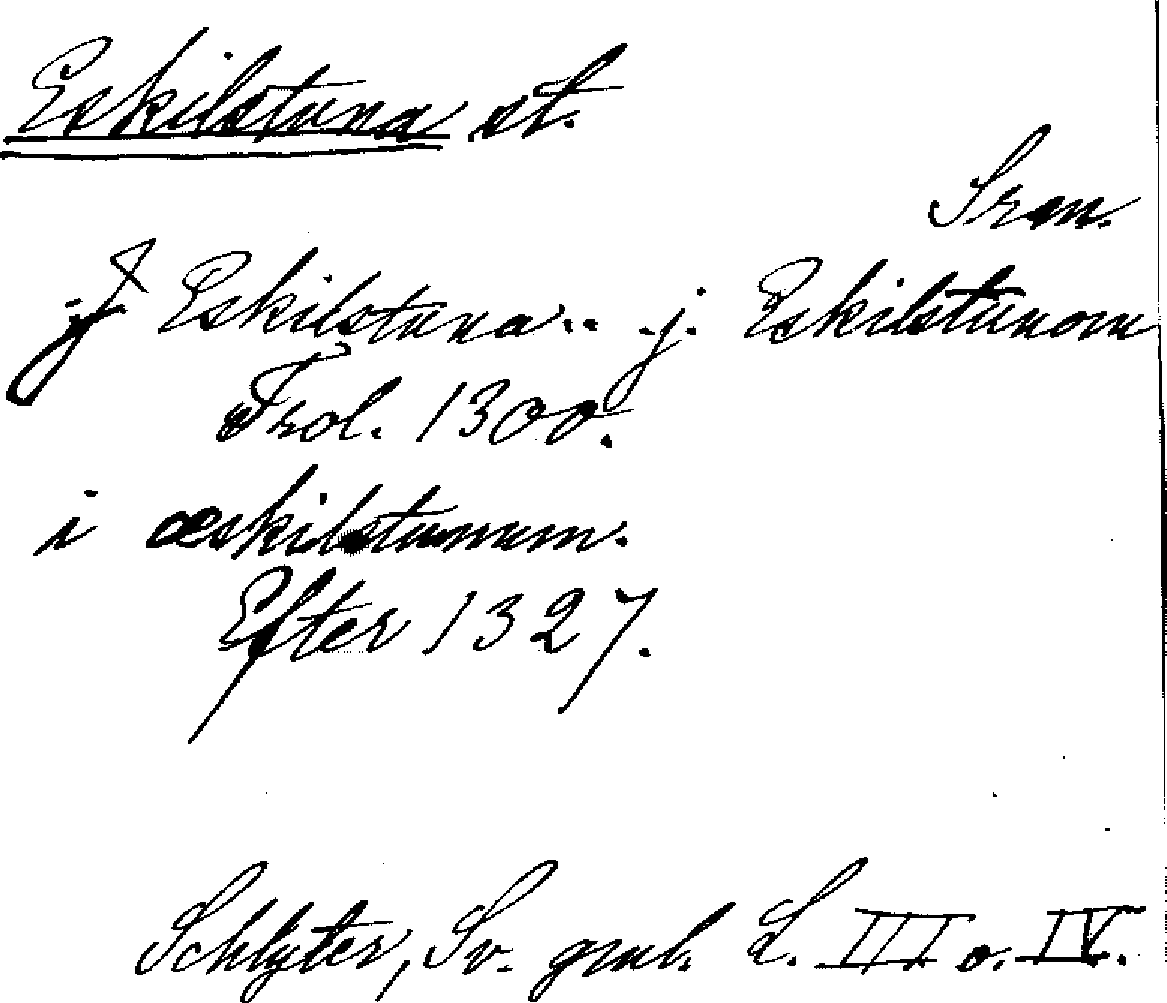 Eskilstuna st.
Srm.
J Eskilstuna.. j. Eskilstunom
Trol. 1300.
i æskilstunum.
Efter 1327.
Schlyter, Sv. gml. L. III o. IV.